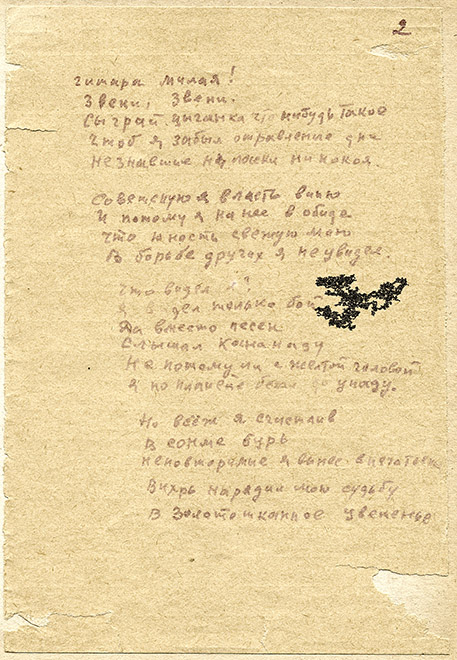 2
гитара милая!
Звени, звени.
Сыграй цыганка что нибудь такое
Чтоб я забыл отравленые дни
Незнавшие ни ласки ни покоя.
Советскую я власть виню
И потому я на нее в обиде
Что юность светлую мою
В борьбе других я не увидел.
Что видел я?
Я видел только бой
Да вместо песен
Слышал канонаду
Не потому ли с желтой головой
Я по планете бегал до упаду.
Но всёж я счастлив
В сонме бурь
неповторимые я вынес впечатленья
Вихрь нарядил мою судьбу
В Золототканное цветенье